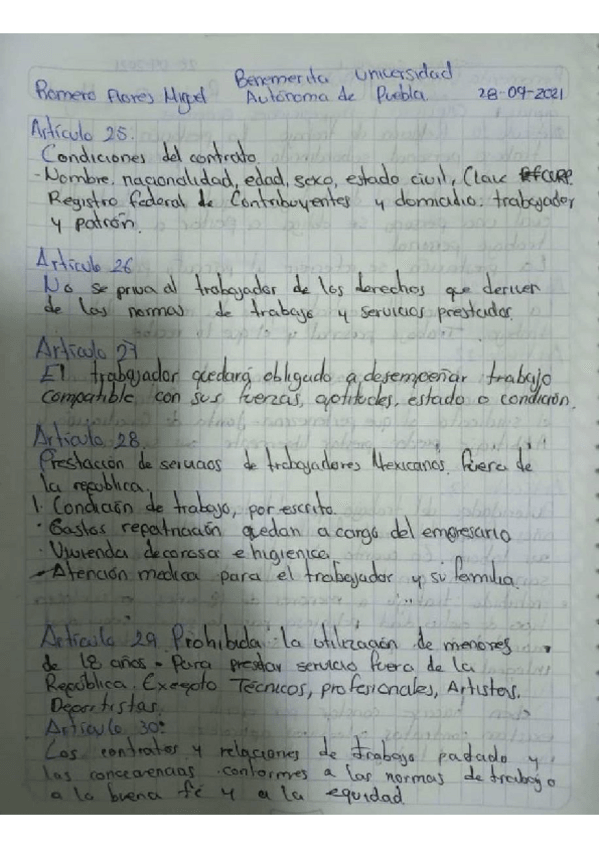 Benemerita Universidad
Romero Flores Miguel Autónoma de Puebla 28-09-2021
Artículo 25:
Condiciones del contrato.
- Nombre, nacionalidad, edad, sexo, estado civil, Clave CURP
Registro federal de Contribuyentes y domicilio: trabajador
y patrón.
Artículo 26
No se priva al trabajador de los derechos que deriven
de las normas de trabajo y servicios prestados.
Artículo 27
El trabajador quedará obligado a desempeñar trabajo
compatible con sus fuerzas, aptitudes, estado o condición.
Artículo 28
Prestación de servicios de trabajadores Mexicanos fuera de
la republica.
1. Condición de trabajo, por escrito.
· Gastos repatriación quedan a cargo del empresario
· Vivienda decorosa e higienica.
- Atención medica para el trabajador y su familia.
Artículo 29 Prohibida la utilización de menores
de 18 años - Para prestar servicio fuera de la
República. Excepto Técnicos, profesionales, Artistas,
Deportistas.
Artículo 30:
Los contratos y relaciones de trabajo pactado y
las conforme a las normas de trabajo
a la buena fé y a la equidad